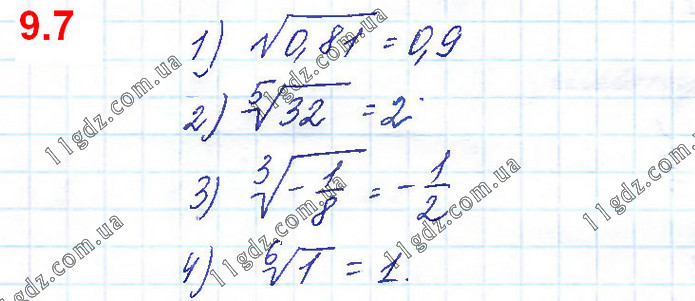 9.7
1) √0,81 = 0,9
2) ⁵√32 = 2;
3) ³√-1/8 = -1/2
4) ⁶√1 = 1.
11gdz.com.ua
11gdz.com.ua
11gdz.com.ua
11gdz.com.ua
11gdz.com.ua
11gdz.com.ua